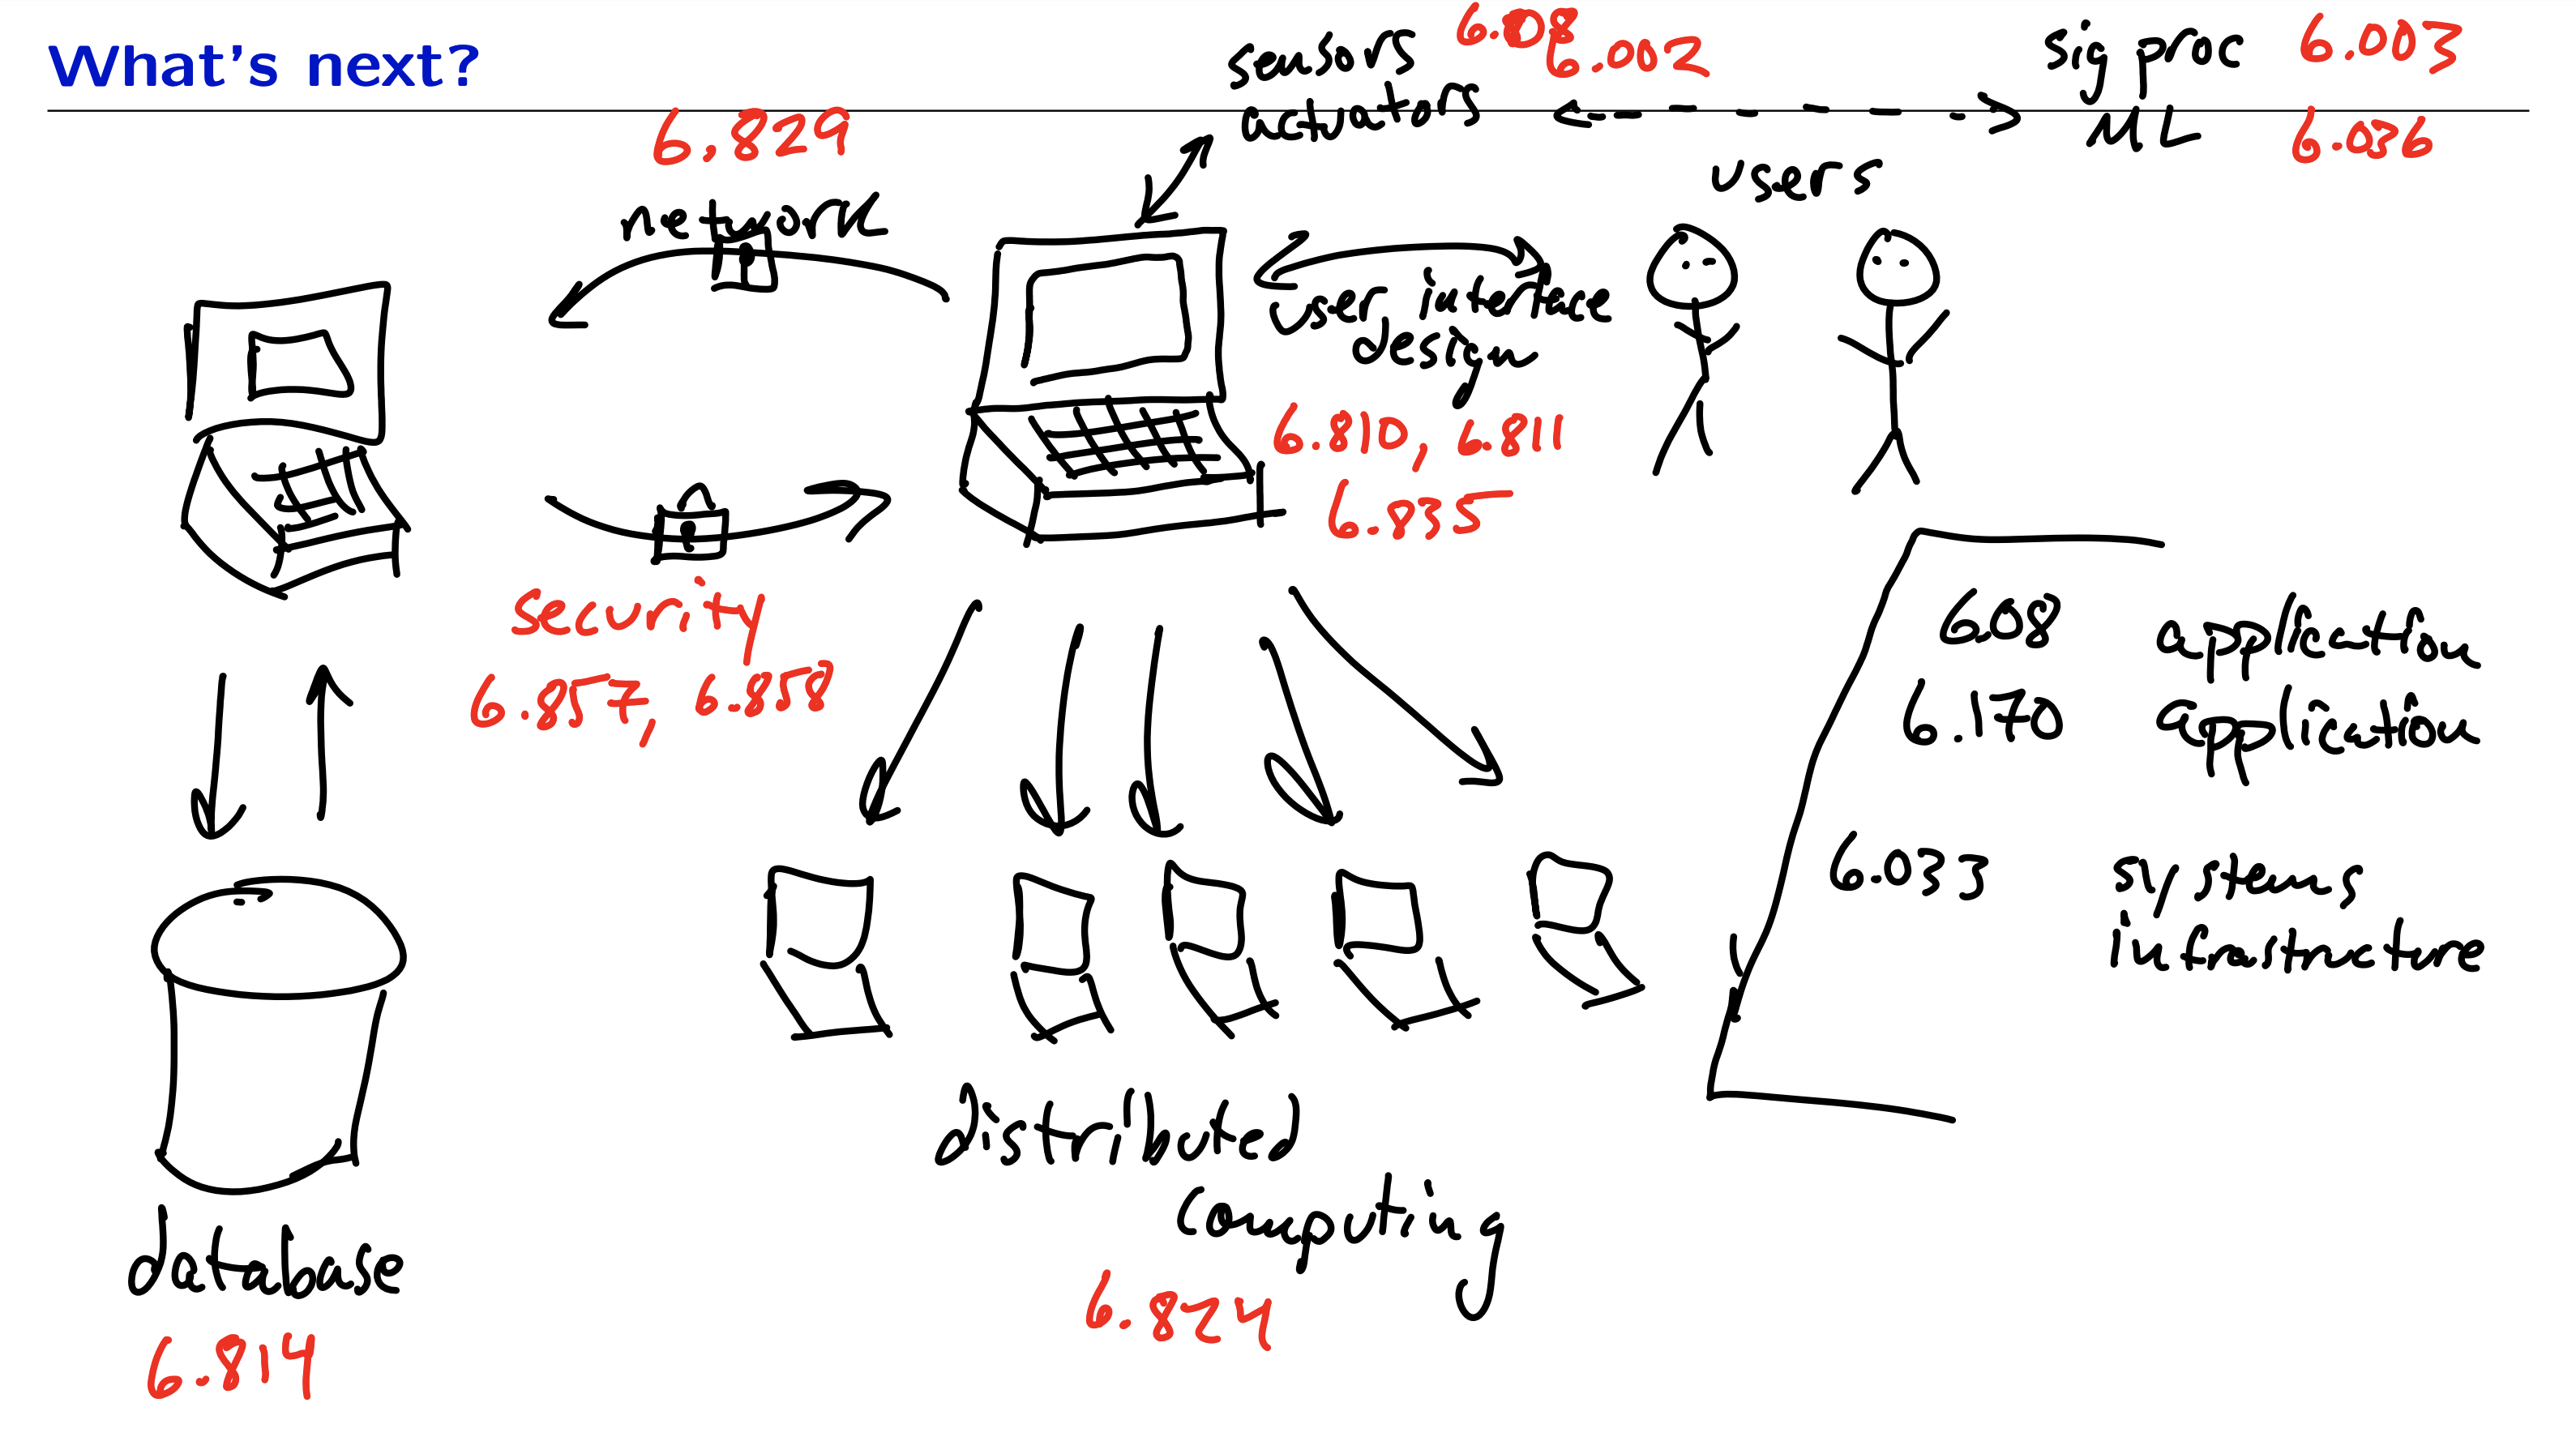 What's next?
sensors 6.08
6.002
actuators
sig proc 6.003
ML 6.036
6.829
network
users
user interface
design
6.810, 6.811
6.835
security
6.857, 6.858
6.08 application
6.170 application
6.033 systems
infrastructure
distributed
computing
6.824
database
6.814